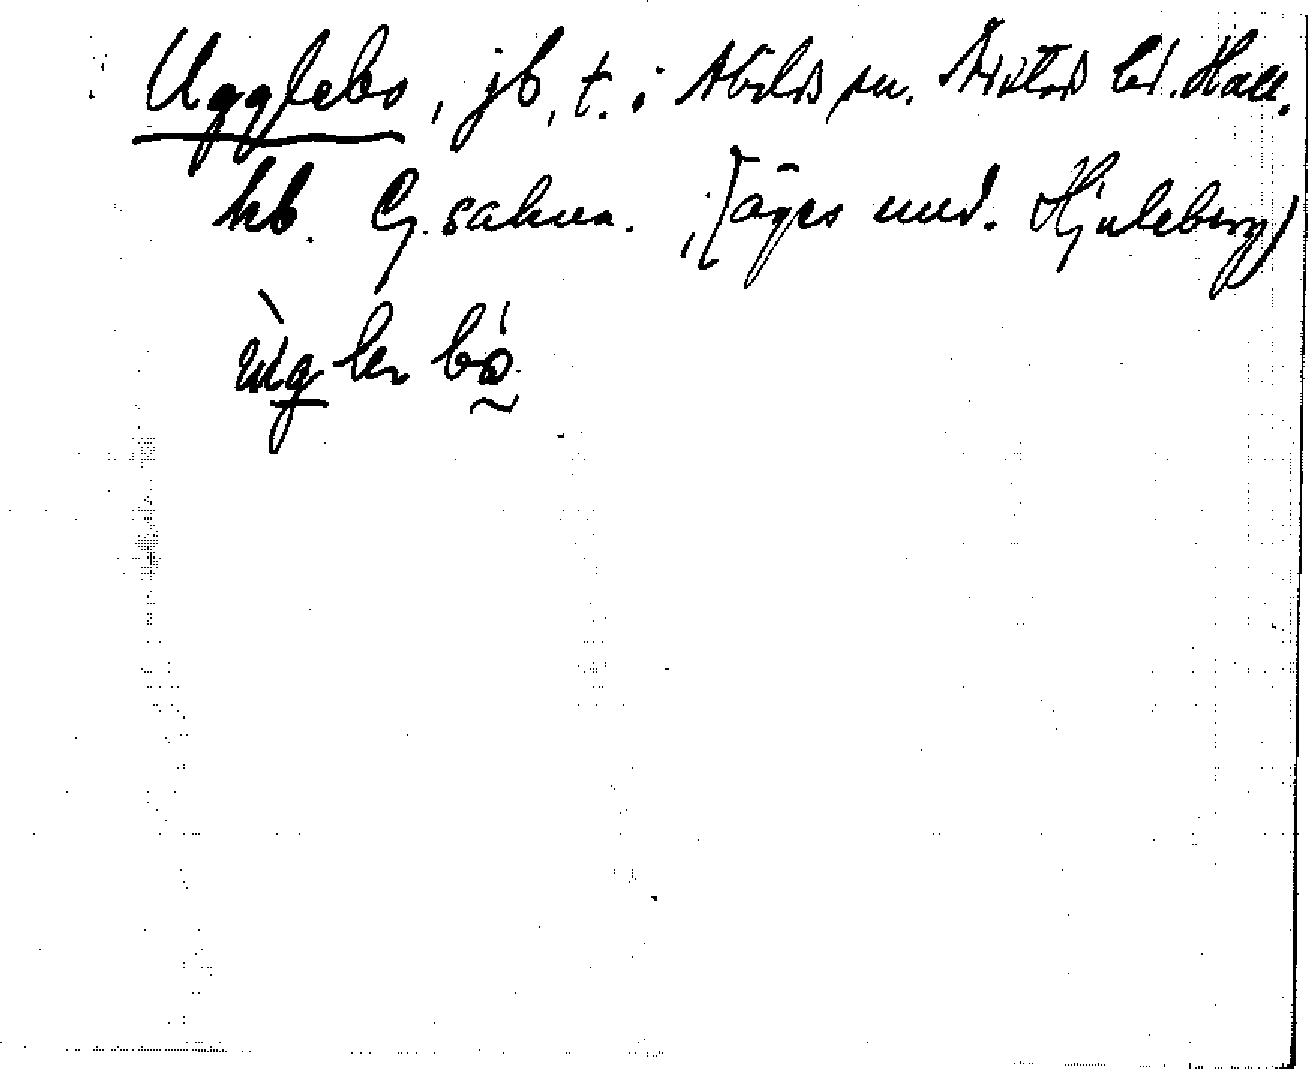 Ugglebo, jb, t. i Abilds sn. Årstads hd. Hall.
kb. G. sakna. , [äges und. Hjuleberg)
ùg ler bó